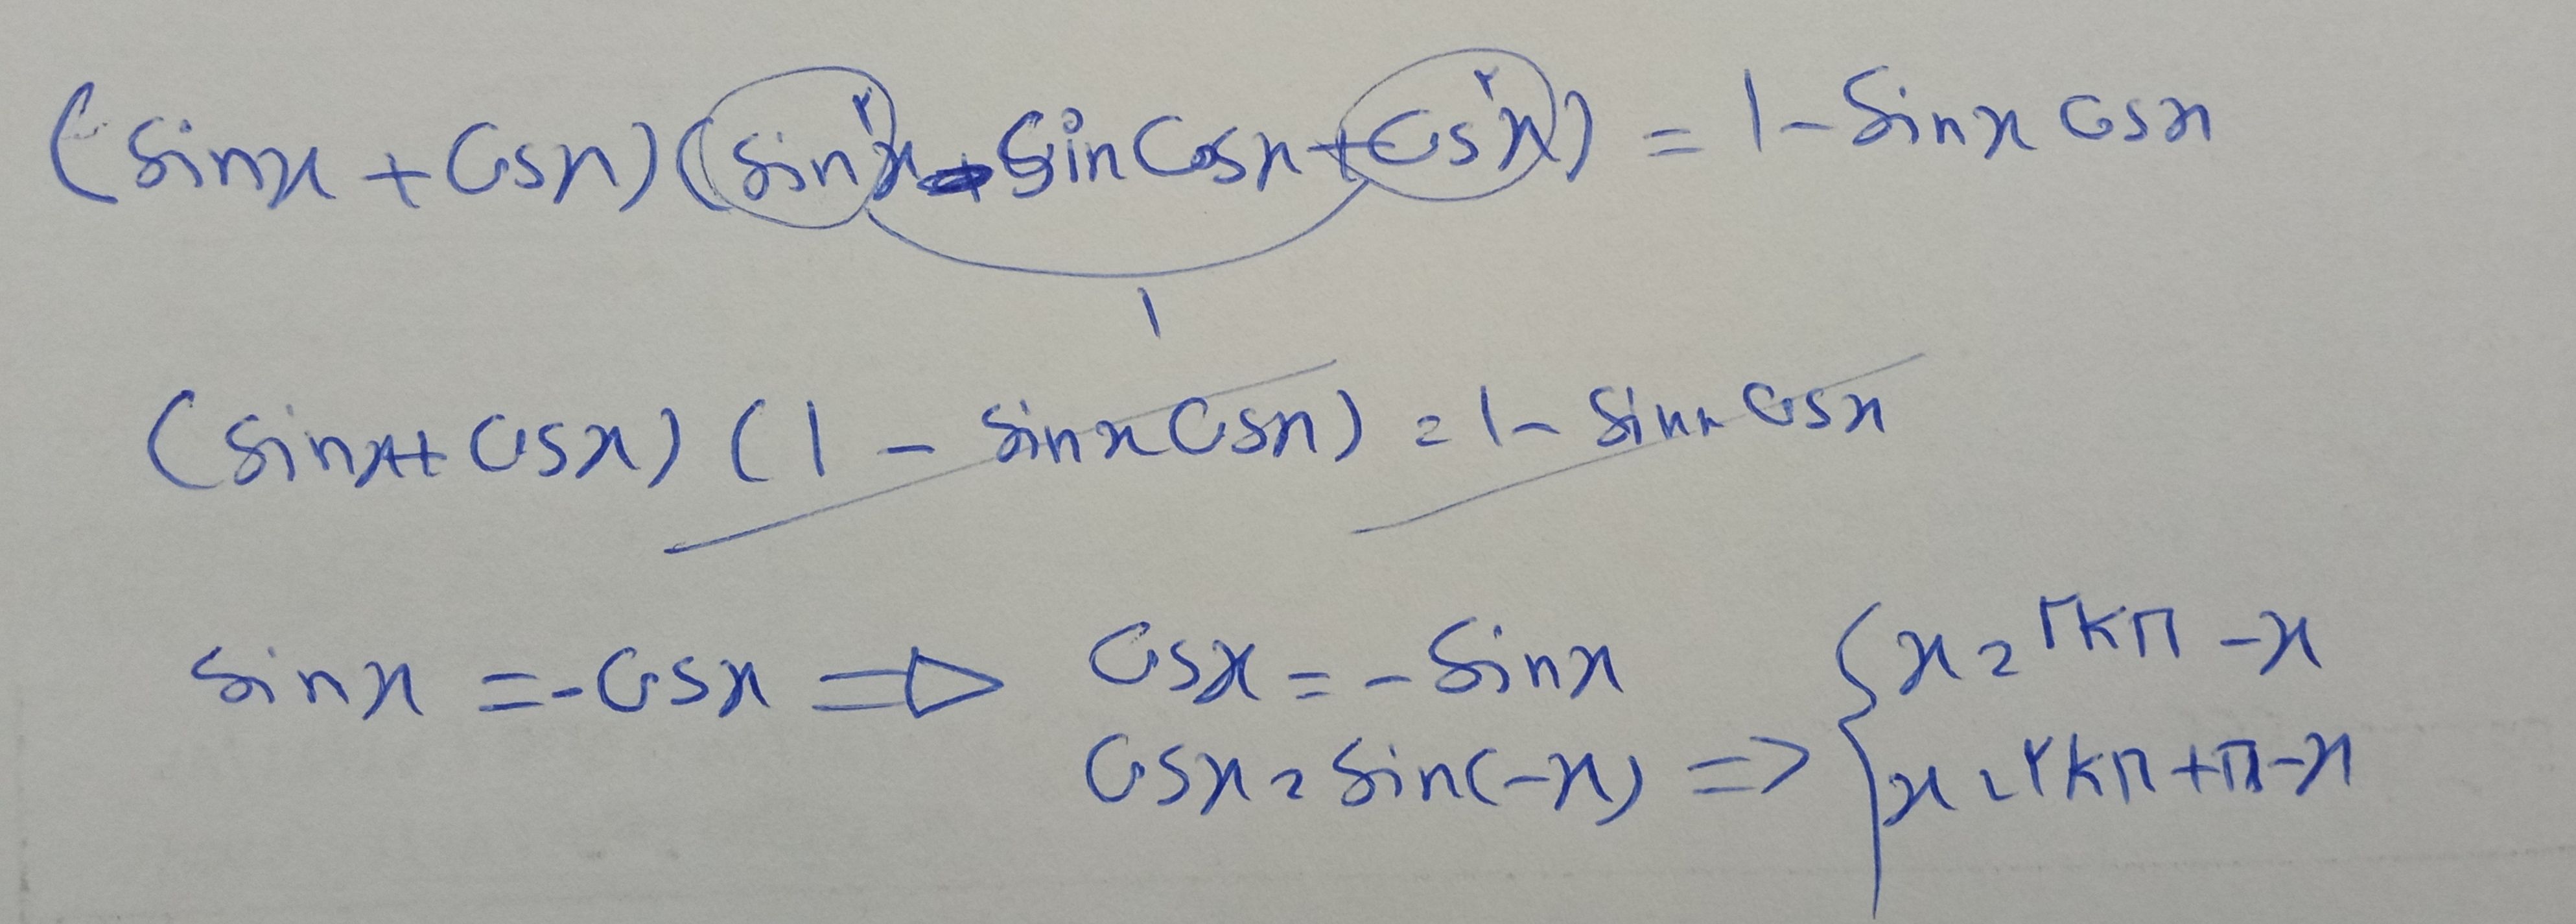 (sinx + Cosx)(sin²x - sin Cosx + Cos²x) = 1 - sinx Cosx
1
(sinx + Cosx) (1 - sinx Cosx) = 1 - sinx Cosx
sinx = -Cosx ⇒ Cosx = -sinx { x = ۲kπ - x
Cosx = sin(-x) => x = ۲kπ + π - x